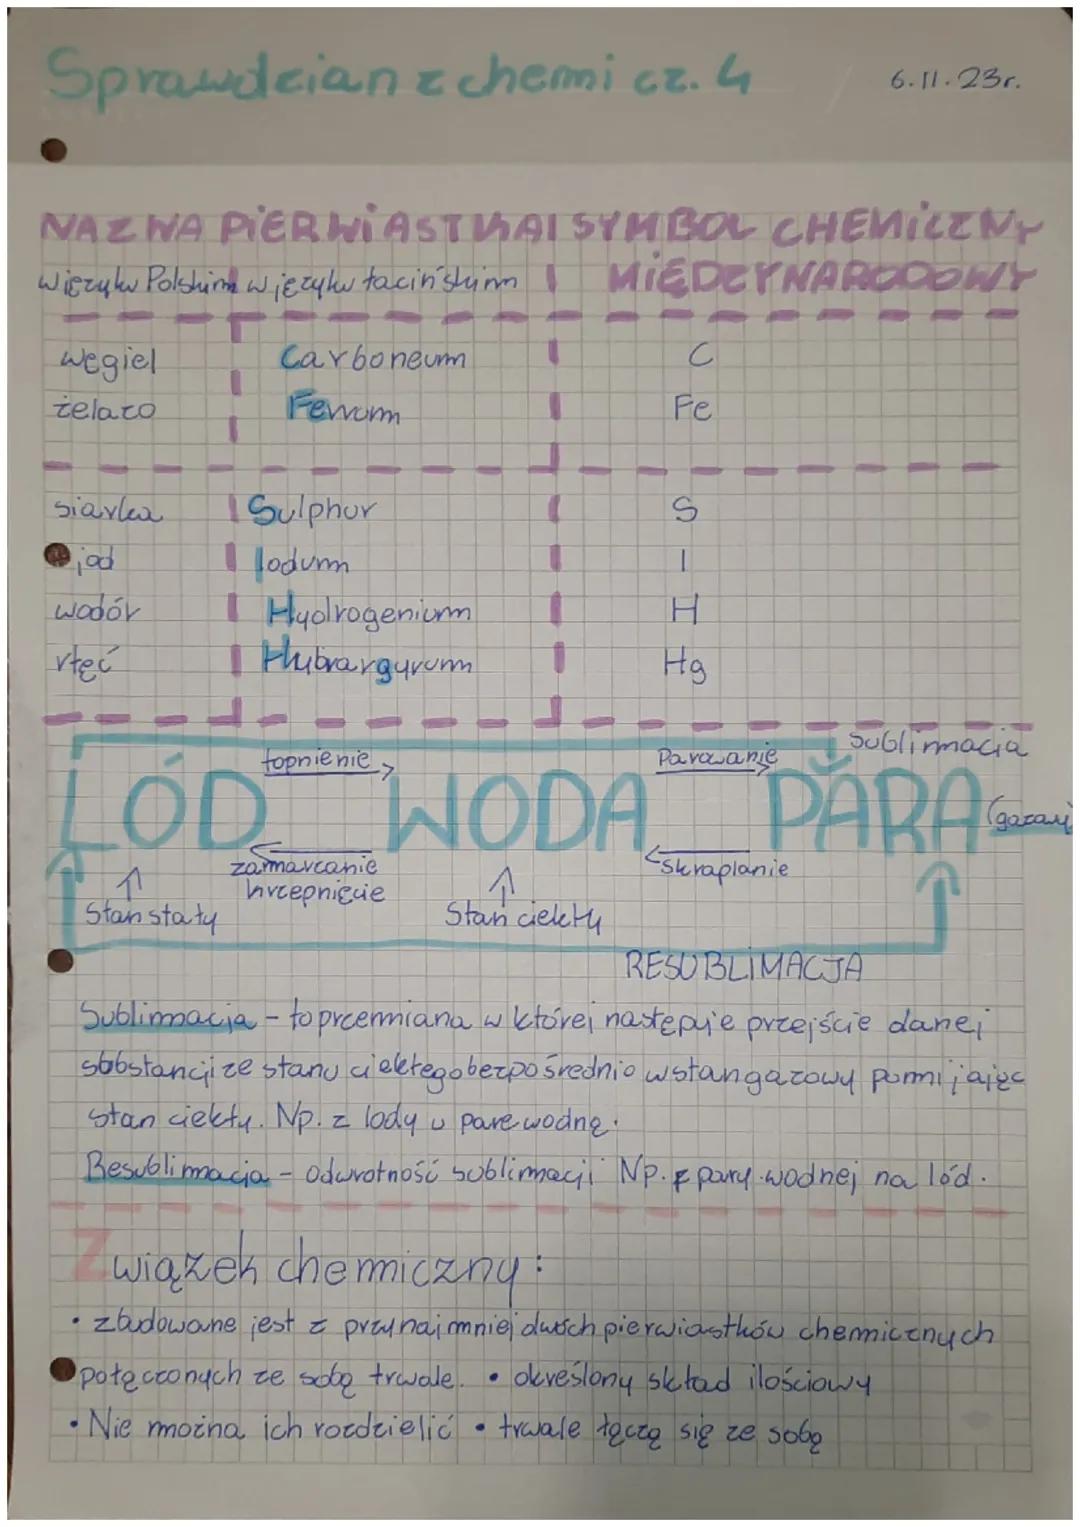 Sprawdzian z chemi cz. 4
6.11.23r.
NAZWA PIERWIASTKA I SYMBOL CHEMICZNY
w języku Polskim w języku łacińskim MIĘDZYNARODOWY
węgiel Carboneum C
żelazo Ferrum Fe
siarka Sulphur S
jod Iodum I
wodór Hydrogenium H
rtęć Hybrargyrum Hg
Sublimacja
topnienie Parowanie
LÓD WODA PARA (gazowy
zamarzanie skraplanie
krzepnięcie
Stan stały Stan ciekły
RESUBLIMACJA
Sublimacja - to przemiana w której następuje przejście danej
substancji ze stanu ciekłego bezpośrednio w stan gazowy pomijając
stan ciekły. Np. z lody u parę wodną.
Resublimacja - odwrotność sublimacji Np. z pary wodnej na lód.
Związek chemiczny:
• zbudowane jest z przynajmniej dwóch pierwiastków chemicznych
połączonych ze sobą trwale. • określony skład ilościowy
• Nie można ich rozdzielić • trwale łączą się ze sobą